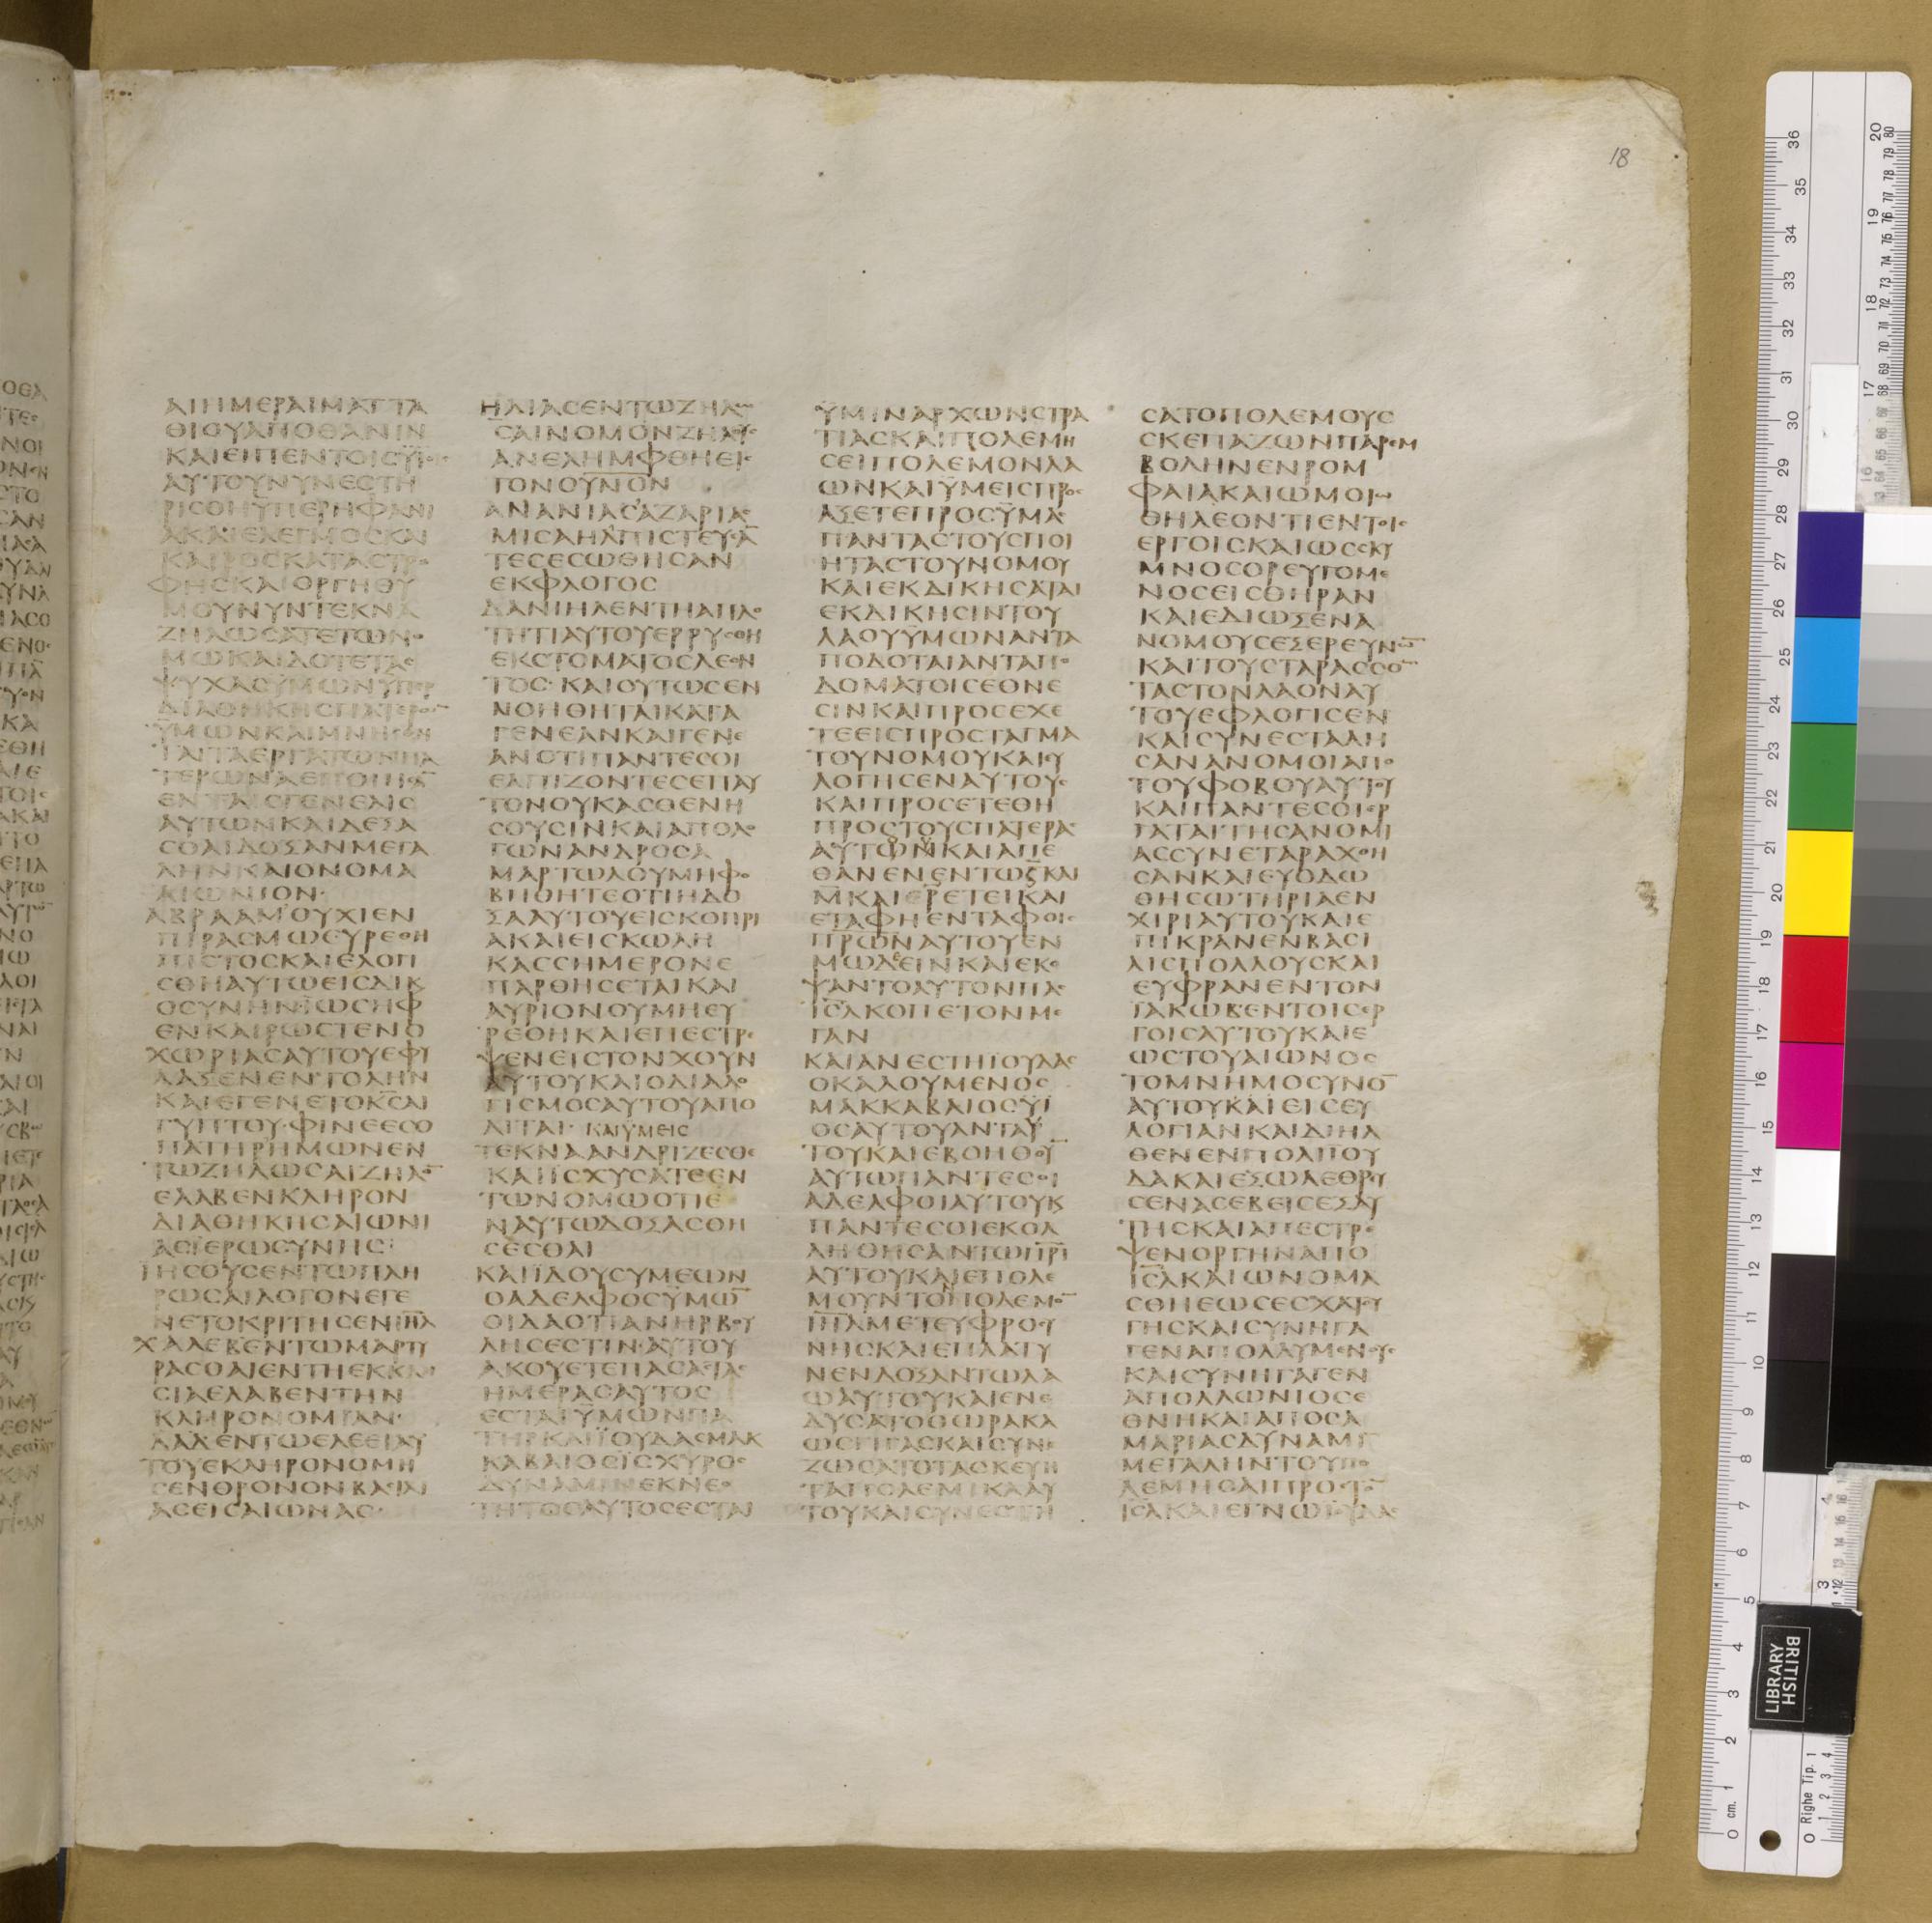 18
ΑΙΗΜΕΡΑΙΜΑΤΤΑ
ΘΙΟΥΑΠΟΘΑΝΙΝ
ΚΑΙΕΙΠΕΝΤΟΙΣΥΪΟΙΣ
ΑΥΤΟΥΝΥΝΕΣΤΗ
ΡΙΣΘΗΫΠΕΡΗΦΑΝΙ
ΑΚΑΙΕΛΕΓΜΟΣΚΑΙ
ΚΑΙΡΟΣΚΑΤΑΣΤΡΟ
ΦΗΣΚΑΙΟΡΓΗΘΥ
ΜΟΥΝΥΝΤΕΚΝΑ
ΖΗΛΩΣΑΤΕΤΩΝΟ
ΜΩΚΑΙΔΟΤΕΤΑΣ
ΨΥΧΑΣΫΜΩΝΥΠΕΡ
ΔΙΑΘΗΚΗΣΠΑΤΕΡΩ̅
ΫΜΩΝΚΑΙΜΝΗΣΘΗ
ΤΑΙΤΑΕΡΓΑΤΩΝΠΑ
ΤΕΡΩΝΑΕΠΟΙΗΣΑ̅
ΕΝΤΑΙΣΓΕΝΕΑΙΣ
ΑΥΤΩΝΚΑΙΔΕΞΑ
ΣΘΑΙΔΟΞΑΝΜΕΓΑ
ΛΗΝΚΑΙΟΝΟΜΑ
ΑΙΩΝΙΟΝ·
ΑΒΡΑΑΜΟΥΧΙΕΝ
ΠΙΡΑΣΜΩΕΥΡΕΘΗ
ΠΙΣΤΟΣΚΑΙΕΛΟΓΙ
ΣΘΗΑΥΤΩΕΙΣΔΙΚ
ΟΣΥΝΗΝΪΩΣΗΦ
ΕΝΚΑΙΡΩΣΤΕΝΟ
ΧΩΡΙΑΣΑΥΤΟΥΕΦΥ
ΛΑΞΕΝΕΝΤΟΛΗΝ
ΚΑΙΕΓΕΝΕΤΟΚ̅Σ̅ΑΙ
ΓΥΠΤΟΥ·ΦΙΝΕΕΣΟ
ΠΑΤΗΡΗΜΩΝΕΝ
ΤΩΖΗΛΩΣΑΙΖΗΛΟ̅
ΕΛΑΒΕΝΚΛΗΡΟΝ
ΔΙΑΘΗΚΗΣΑΙΩΝΙ
ΑΣΪΕΡΩΣΥΝΗΣ:
ΪΗΣΟΥΣΕΝΤΩΠΛΗ
ΡΩΣΑΙΛΟΓΟΝΕΓΕ
ΝΕΤΟΚΡΙΤΗΣΕΝΪ̅Η̅Λ̅
ΧΑΛΕΒΕΝΤΩΜΑΡΤΥ
ΡΑΣΘΑΙΕΝΤΗΕΚΚΛΗ
ΣΙΑΕΛΑΒΕΝΤΗΝ
ΚΛΗΡΟΝΟΜΙΑΝ·
Δ̅Α̅Δ̅ΕΝΤΩΕΛΕΕΙΑΥ
ΤΟΥΕΚΛΗΡΟΝΟΜΗ
ΣΕΝΘΡΟΝΟΝΒΑΣΙΛΙ
ΑΣΕΙΣΑΙΩΝΑΣ·
ΗΛΙΑΣΕΝΤΩΖΗΛΩ̅
ΣΑΙΝΟΜΟΝΖΗΛΟΥΣ
ΑΝΕΛΗΜΦΘΗΕΙΣ
ΤΟΝΟΥΝΟΝ
ΑΝΑΝΙΑΣΑΖΑΡΙΑΣ
ΜΙΣΑΗΛΠΙΣΤΕΥΣΑ̅
ΤΕΣΕΣΩΘΗΣΑΝ
ΕΚΦΛΟΓΟΣ
ΔΑΝΙΗΛΕΝΤΗΑΠΛΟ
ΤΗΤΙΑΥΤΟΥΕΡΡΥΣΘΗ
ΕΚΣΤΟΜΑΤΟΣΛΕΟΝ
ΤΟΣ·ΚΑΙΟΥΤΩΣΕΝ
ΝΟΗΘΗΤΑΙΚΑΤΑ
ΓΕΝΕΑΝΚΑΙΓΕΝΕ
ΑΝΟΤΙΠΑΝΤΕΣΟΙ
ΕΛΠΙΖΟΝΤΕΣΕΠΑΥ
ΤΟΝΟΥΚΑΣΘΕΝΗ
ΣΟΥΣΙΝΚΑΙΑΠΟΛΟ
ΓΩΝΑΝΔΡΟΣΑ
ΜΑΡΤΩΛΟΥΜΗΦΟ
ΒΗΘΗΤΕΟΤΙΗΔΟ
ΞΑΑΥΤΟΥΕΙΣΚΟΠΡΙ
ΑΚΑΙΕΙΣΚΩΛΗ
ΚΑΣΣΗΜΕΡΟΝΕ
ΠΑΡΘΗΣΕΤΑΙΚΑΙ
ΑΥΡΙΟΝΟΥΜΗΕΥ
ΡΕΘΗΚΑΙΕΠΕΣΤΡΕ
ΨΕΝΕΙΣΤΟΝΧΟΥΝ
ΑΥΤΟΥΚΑΙΟΔΙΑΛΟ
ΓΙΣΜΟΣΑΥΤΟΥΑΠΟ
ΛΙΤΑΙ·ΚΑΙΫΜΕΙΣ
ΤΕΚΝΑΑΝΔΡΙΖΕΣΘΕ
ΚΑΙΪΣΧΥΣΑΤΕΕΝ
ΤΩΝΟΜΩΟΤΙΕ
ΝΑΥΤΩΔΟΞΑΣΘΗ
ΣΕΣΘΑΙ
ΚΑΙΪΔΟΥΣΥΜΕΩΝ
ΟΑΔΕΛΦΟΣΫΜΩ̅
ΟΙΔΑΟΤΙΑΝΗΡΒΟΥ
ΛΗΣΕΣΤΙΝ·ΑΥΤΟΥ
ΑΚΟΥΕΤΕΠΑΣΑΣΤΑΣ
ΗΜΕΡΑΣΑΥΤΟΣ
ΕΣΤΑΙΫΜΩΝΠΑ
ΤΗΡΚΑΙΪΟΥΔΑΣΜΑΚ
ΚΑΒΑΙΟΣΪΣΧΥΡΟΣ
ΔΥΝΑΜΙΝΕΚΝΕΟ
ΤΗΤΟΣΑΥΤΟΣΕΣΤΑΙ
ΫΜΙΝΑΡΧΩΝΣΤΡΑ
ΤΙΑΣΚΑΙΠΟΛΕΜΗ
ΣΕΙΠΟΛΕΜΟΝΛΑ
ΩΝΚΑΙΫΜΕΙΣΠΡΟΣ
ΑΞΕΤΕΠΡΟΣΫΜΑΣ
ΠΑΝΤΑΣΤΟΥΣΠΟΙ
ΗΤΑΣΤΟΥΝΟΜΟΥ
ΚΑΙΕΚΔΙΚΗΣΑΤΑΙ
ΕΚΔΙΚΗΣΙΝΤΟΥ
ΛΑΟΥΥΜΩΝΑΝΤΑ
ΠΟΔΟΤΑΙΑΝΤΑΠΟ
ΔΟΜΑΤΟΙΣΕΘΝΕ
ΣΙΝΚΑΙΠΡΟΣΕΧΕ
ΤΕΕΙΣΠΡΟΣΤΑΓΜΑ
ΤΟΥΝΟΜΟΥΚΑΙΥ
ΛΟΓΗΣΕΝΑΥΤΟΥΣ
ΚΑΙΠΡΟΣΕΤΕΘΗ
ΠΡΟΣΤΟΥΣΠΑΤΕΡΑΣ
ΑΥΤΩΝΚΑΙΑΠΕ
ΘΑΝΕΝΕΝΤΩϚΚΑΙ
Μ̅ΚΑΙΕΡ̅ΕΤΕΙΚΑΙ
ΕΤΑΦΗΕΝΤΑΦΟΙΣ
Π̅Ρ̅Ω̅Ν̅ΑΥΤΟΥΕΝ
ΜΩΔΕΕΙΝΚΑΙΕΚΟ
ΨΑΝΤΟΑΥΤΟΝΠΑΣ
Ϊ̅Σ̅ΛΚΟΠΕΤΟΝΜΕ
ΓΑΝ
ΚΑΙΑΝΕΣΤΗΪΟΥΔΑΣ
ΟΚΑΛΟΥΜΕΝΟΣ
ΜΑΚΚΑΒΑΙΟΣΫΪ
ΟΣΑΥΤΟΥΑΝΤΑΥ
ΤΟΥΚΑΙΕΒΟΗΘΟΥ̅
ΑΥΤΩΠΑΝΤΕΣΟΙ
ΑΔΕΛΦΟΙΑΥΤΟΥΚ
ΠΑΝΤΕΣΟΙΕΚΟΛ
ΛΗΘΗΣΑΝΤΩΠ̅Ρ̅Ι̅
ΑΥΤΟΥΚΑΙΕΠΟΛΕ
ΜΟΥΝΤΟΝΠΟΛΕΜΟ̅
Ϊ̅Η̅Λ̅ΜΕΤΕΥΦΡΟΣΥ
ΝΗΣΚΑΙΕΠΛΑΤΥ
ΝΕΝΔΟΞΑΝΤΩΛΑ
ΩΑΥΤΟΥΚΑΙΕΝΕ
ΔΥΣΑΤΟΘΩΡΑΚΑ
ΩΣΓΙΓΑΣΚΑΙΣΥΝΕ
ΖΩΣΑΤΟΤΑΣΚΕΥΗ
ΤΑΠΟΛΕΜΙΚΑΑΥ
ΤΟΥΚΑΙΣΥΝΕΣΤΗ
ΣΑΤΟΠΟΛΕΜΟΥΣ
ΣΚΕΠΑΖΩΝΠΑΡΕΜ
ΒΟΛΗΝΕΝΡΟΜ
ΦΑΙΑΚΑΙΩΜΟΙΩ
ΘΗΛΕΟΝΤΙΕΝΤΟΙΣ
ΕΡΓΟΙΣΚΑΙΩΣΣΚΥ
ΜΝΟΣΟΡΕΥΓΟΜΕ
ΝΟΣΕΙΣΘΗΡΑΝ
ΚΑΙΕΔΙΩΞΕΝΑ
ΝΟΜΟΥΣΕΞΕΡΕΥΝΩ̅
ΚΑΙΤΟΥΣΤΑΡΑΣΣΟ̅
ΤΑΣΤΟΝΛΑΟΝΑΥ
ΤΟΥΕΦΛΟΓΙΣΕΝ
ΚΑΙΣΥΝΕΣΤΑΛΗ
ΣΑΝΑΝΟΜΟΙΑΠΟ
ΤΟΥΦΟΒΟΥΑΥΤΟΥ
ΚΑΙΠΑΝΤΕΣΟΙΕΡ
ΓΑΤΑΙΤΗΣΑΝΟΜΙ
ΑΣΣΥΝΕΤΑΡΑΧΘΗ
ΣΑΝΚΑΙΕΥΟΔΩ
ΘΗΣΩΤΗΡΙΑΕΝ
ΧΙΡΙΑΥΤΟΥΚΑΙΕ
ΠΙΚΡΑΝΕΝΒΑΣΙ
ΛΙΣΠΟΛΛΟΥΣΚΑΙ
ΕΥΦΡΑΝΕΝΤΟΝ
ΪΑΚΩΒΕΝΤΟΙΣΕΡ
ΓΟΙΣΑΥΤΟΥΚΑΙΕ
ΩΣΤΟΥΑΙΩΝΟΣ
ΤΟΜΝΗΜΟΣΥΝΟ̅
ΑΥΤΟΥΚΑΙΕΙΣΕΥ
ΛΟΓΙΑΝΚΑΙΔΙΗΛ
ΘΕΝΕΝΠΟΛΙΪΟΥ
ΔΑΚΑΙΕΞΩΛΕΘΡΥ
ΣΕΝΑΣΕΒΕΙΣΕΞΑΥ
ΤΗΣΚΑΙΑΠΕΣΤΡΕ
ΨΕΝΟΡΓΗΝΑΠΟ
Ϊ̅Σ̅ΛΚΑΙΩΝΟΜΑ
ΣΘΗΕΩΣΕΣΧΑΤΟΥ
ΓΗΣΚΑΙΣΥΝΗΓΑ
ΓΕΝΑΠΟΛΛΥΜΕΝΟΥΣ
ΚΑΙΣΥΝΗΓΑΓΕΝ
ΑΠΟΛΛΩΝΙΟΣΕ
ΘΝΗΚΑΙΑΠΟΣΑ
ΜΑΡΙΑΣΔΥΝΑΜΙ
ΜΕΓΑΛΗΝΤΟΥΠΟ
ΛΕΜΗΣΑΙΠΡΟΣΤΟ̅
Ϊ̅Σ̅ΛΚΑΙΕΓΝΩΪΟΥΔΑΣ